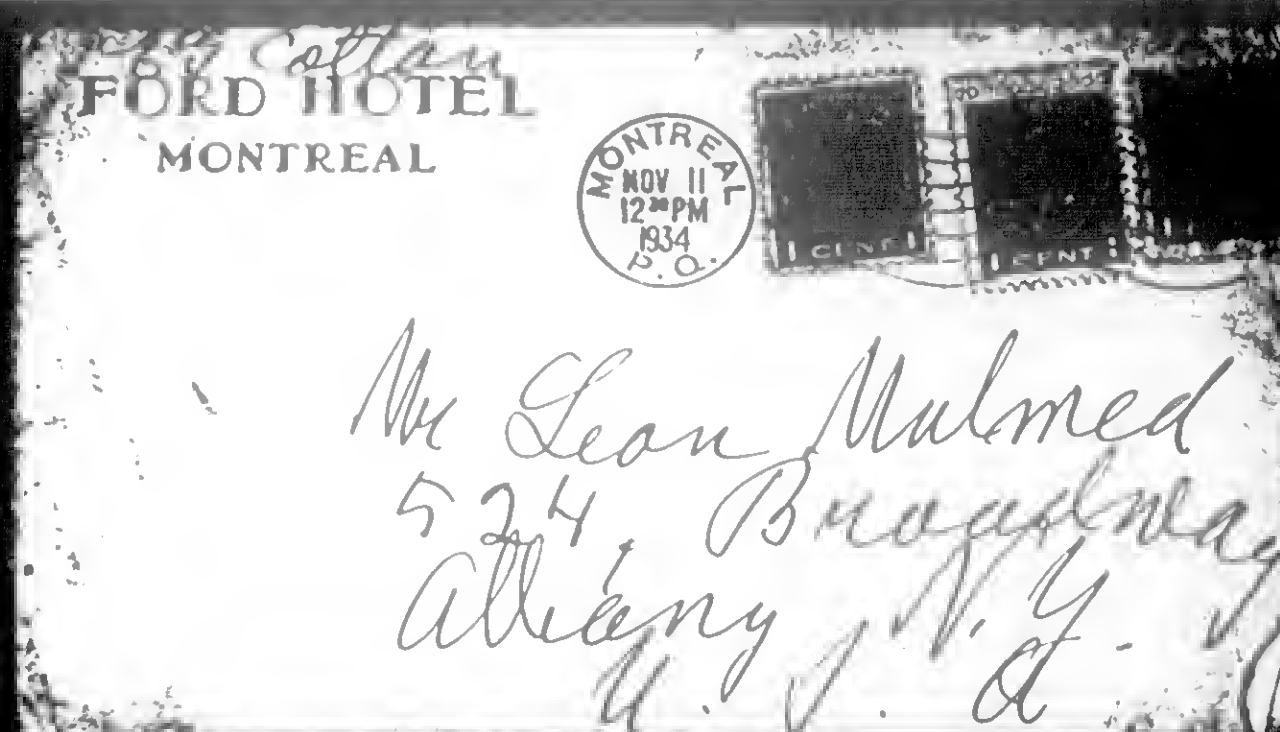 Colton
FORD HOTEL
MONTREAL
MONTREAL
NOV 11
12 30 PM
1934
P.Q.
1 CENT 1
1 CENT 1
Mr Leon Malmed
524, Broadway
Albany N. Y.
U. S. A